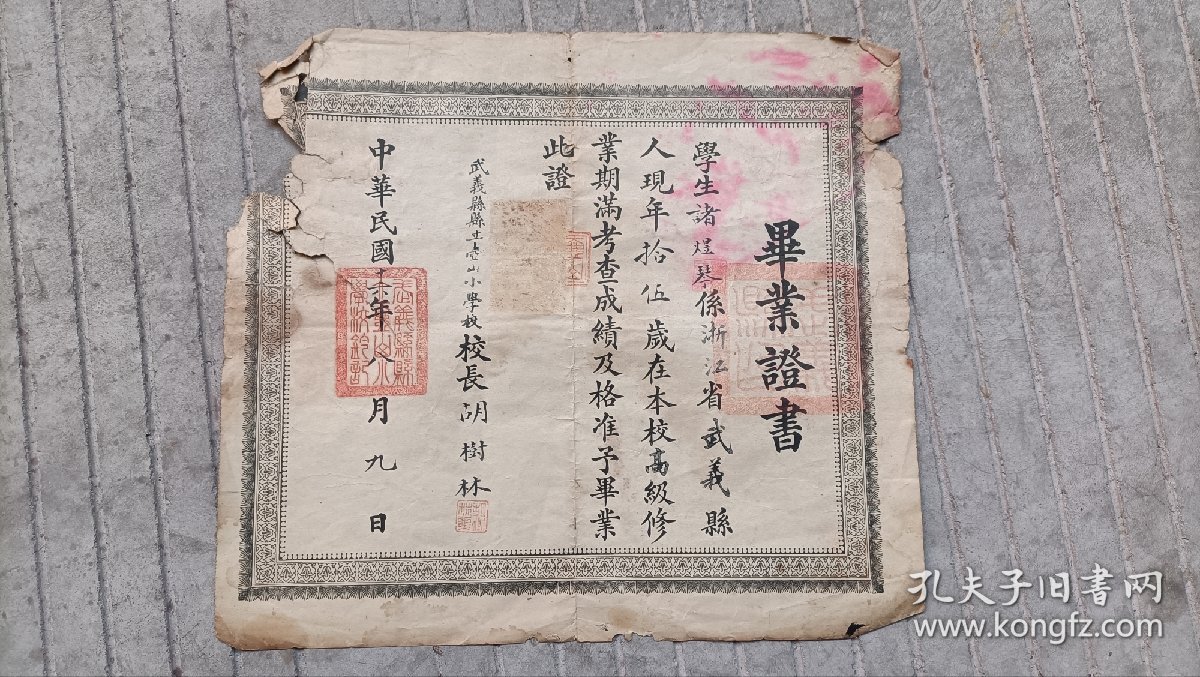 畢業證書
學生諸煜琴係浙江省武義縣
人現年拾伍歲在本校高級修
業期滿考查成績及格准予畢業
此證
武義縣縣立壺山小學校校長胡樹林
中華民國十六年八月九日
孔夫子旧书网
www.kongfz.com